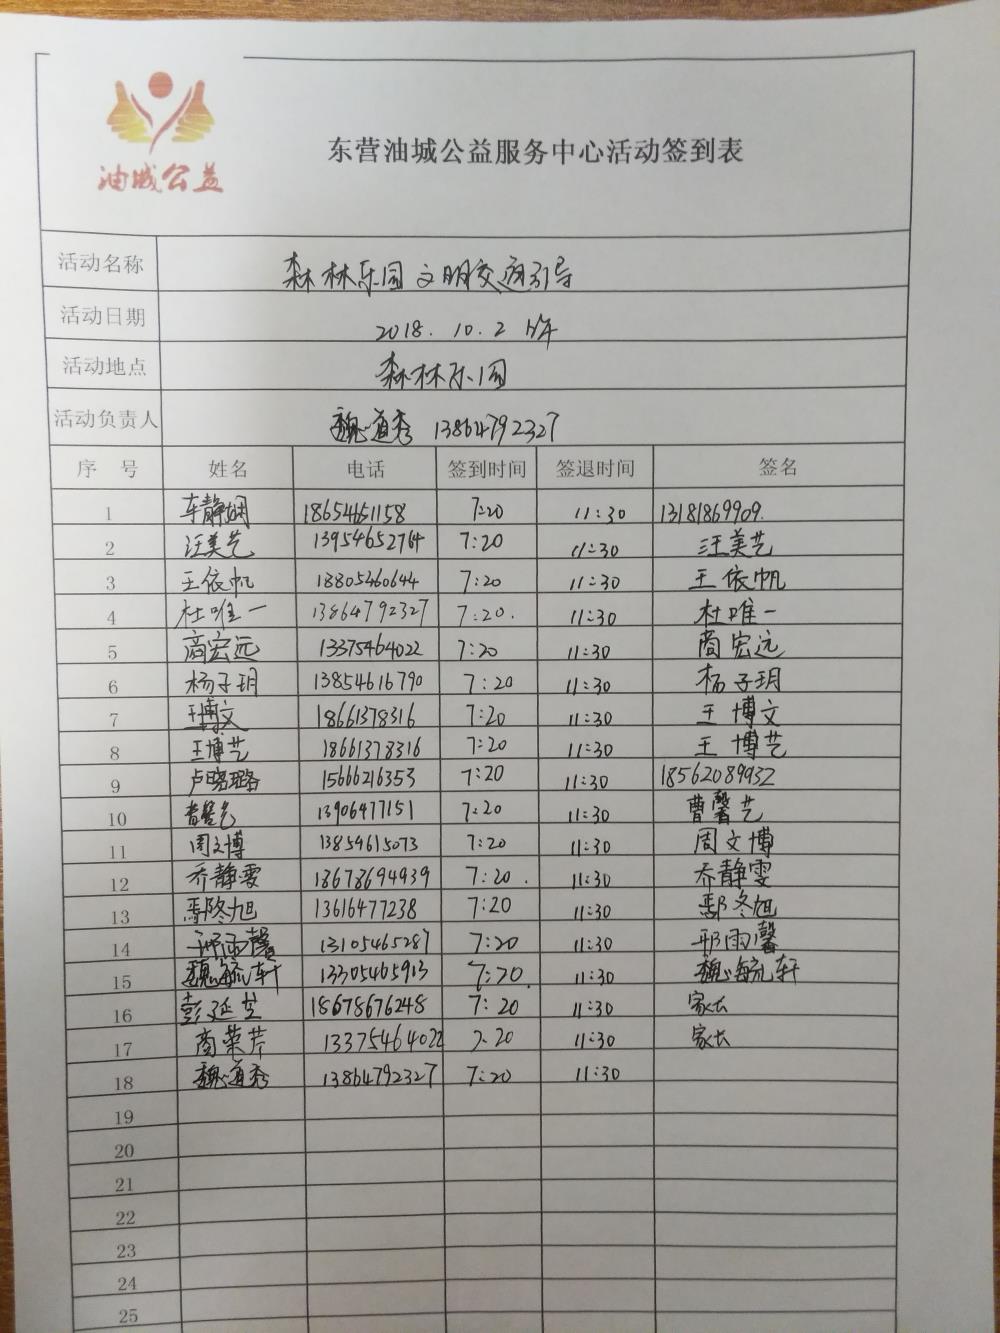 油城公益
东营油城公益服务中心活动签到表
活动名称 森林乐园文明交通引导
活动日期 2018.10.2 上午
活动地点 森林乐园
活动负责人 魏道秀 13864792327
序号 姓名 电话 签到时间 签退时间 签名
1 车静娴 18654651158 7:20 11:30 13181869909.
2 汪美艺 13954652764 7:20 11:30 汪美艺
3 王依帆 18805460644 7:20 11:30 王依帆
4 杜唯一 13864792327 7:20. 11:30 杜唯一
5 商宏远 13375464022 7:20 11:30 商宏远
6 杨子玥 13854616790 7:20 11:30 杨子玥
7 王博文 18661378316 7:20 11:30 王博文
8 王博艺 18661378316 7:20 11:30 王博艺
9 卢晓璐 15666216353 7:20 11:30 18562089932
10 曹馨艺 13906477151 7:20 11:30 曹馨艺
11 周文博 13854615073 7:20 11:30 周文博
12 乔静雯 13678694939 7:20. 11:30 乔静雯
13 鄢冬旭 13616477238 7:20 11:30 鄢冬旭
14 邢雨馨 13105465287 7:20 11:30 邢雨馨
15 魏毓轩 13305465913 7:20. 11:30 魏毓轩
16 彭延芝 18678676248 7:20 11:30 家长
17 商荣芹 13375464022 7:20 11:30 家长
18 魏道秀 13864792327 7:20 11:30
19
20
21
22
23
24
25